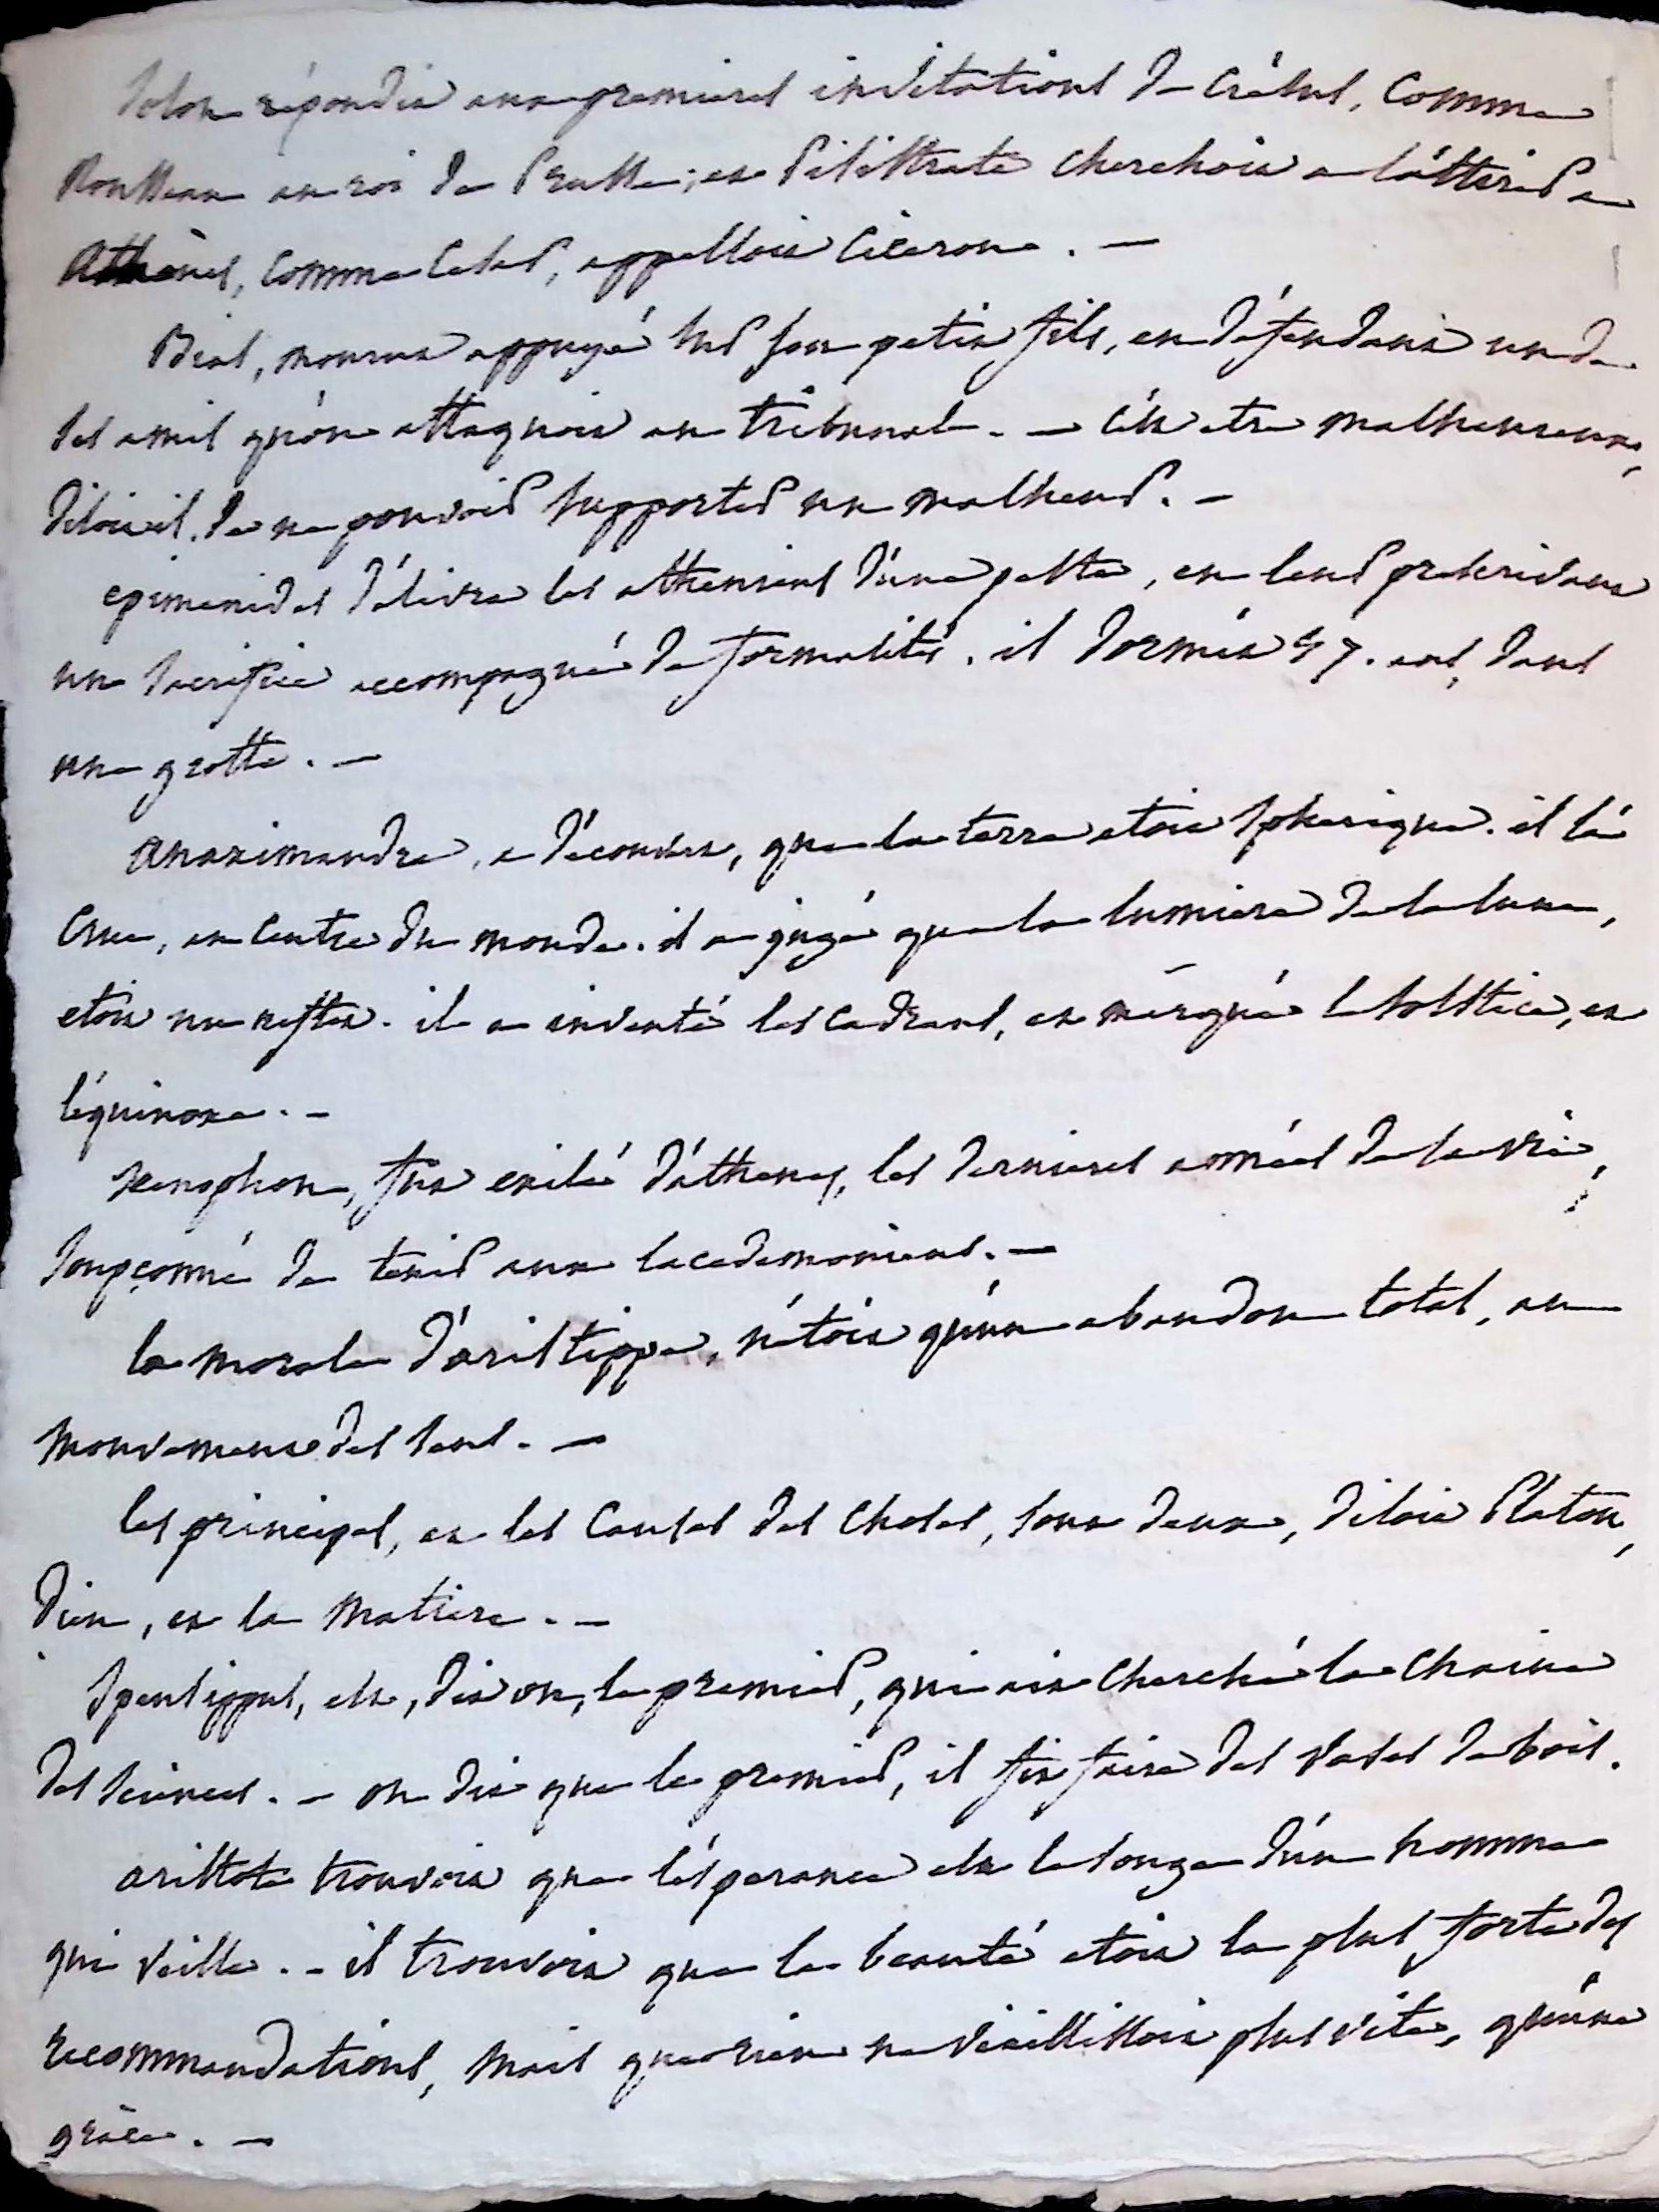 Solon répondit aux premieres invitations de Crésus, comme
Rousseau au roi de Prusse; et Pisistrate cherchoit a l'attirer a
Athènes, comme Cesar, appelloit Ciceron. —
Bias, mourut appuyé sur son petit fils, en défendant un de
ses amis qu'on attaquoit au tribunal. — c'est etre malheureux,
disoit il, de ne pouvoir supporter un malheur. —
epimenides délivra les atheniens d'une peste, en leur prescrivant
un sacrifice accompagné de formalités. il dormit 57. ans, dans
une grotte. —
Anaximandre, a découvert, que la terre etoit spherique. il la
crut, au centre du monde. il a jugé que la lumiere de la lune,
etoit un reflet. il a inventé les cadrans, et marqué le solstice, et
l'équinoxe. —
Xenophon, fut exilé d'athenes, les dernieres années de sa vie,
soupçonné de tenir aux lacedemoniens. —
la morale d'aristippe, n'étoit qu'un abandon total, au
mouvement des sens. —
les principes, et les causes des choses, sont deux, disoit Platon,
dieu, et la matiere. —
Speusippus, est, dit on, le premier, qui ait cherché la chaine
des sciences. — on dit que le premier, il fit faire des vases de bois.
aristote trouvoit que l'ésperance est le songe d'un homme
qui veille. — il trouvoit que la beauté etoit la plus forte des
recommandations, mais que rien ne vieillissoit plus vite, qu'une
grâce. —